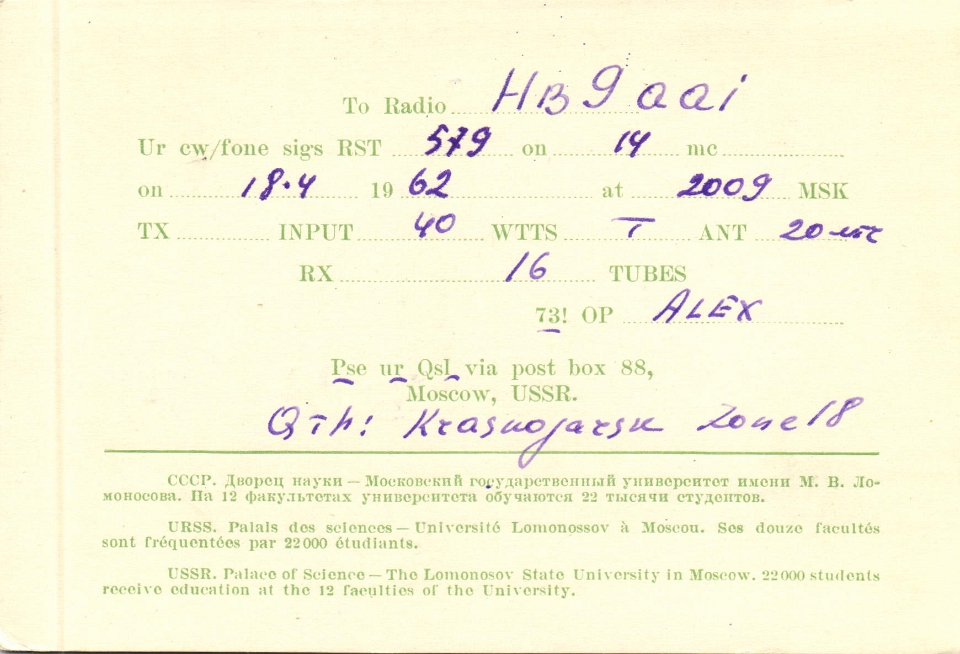 To Radio HB9aai
Ur cw/fone sigs RST 579 on 14 mc
on 18.4 1962 at 2009 MSK
TX INPUT 40 WTTS T ANT 20
RX 16 TUBES
73! OP ALEX
Pse ur Qsl via post box 88,
Moscow, USSR.
Qth: Krasnojarsk zone 18
СССР. Дворец науки — Московский государственный университет имени М. В. Ло-
моносова. На 12 факультетах университета обучаются 22 тысячи студентов.
URSS. Palais des sciences — Université Lomonossov à Moscou. Ses douze facultés
sont fréquentées par 22 000 étudiants.
USSR. Palace of Science — The Lomonosov State University in Moscow. 22 000 students
receive education at the 12 faculties of the University.